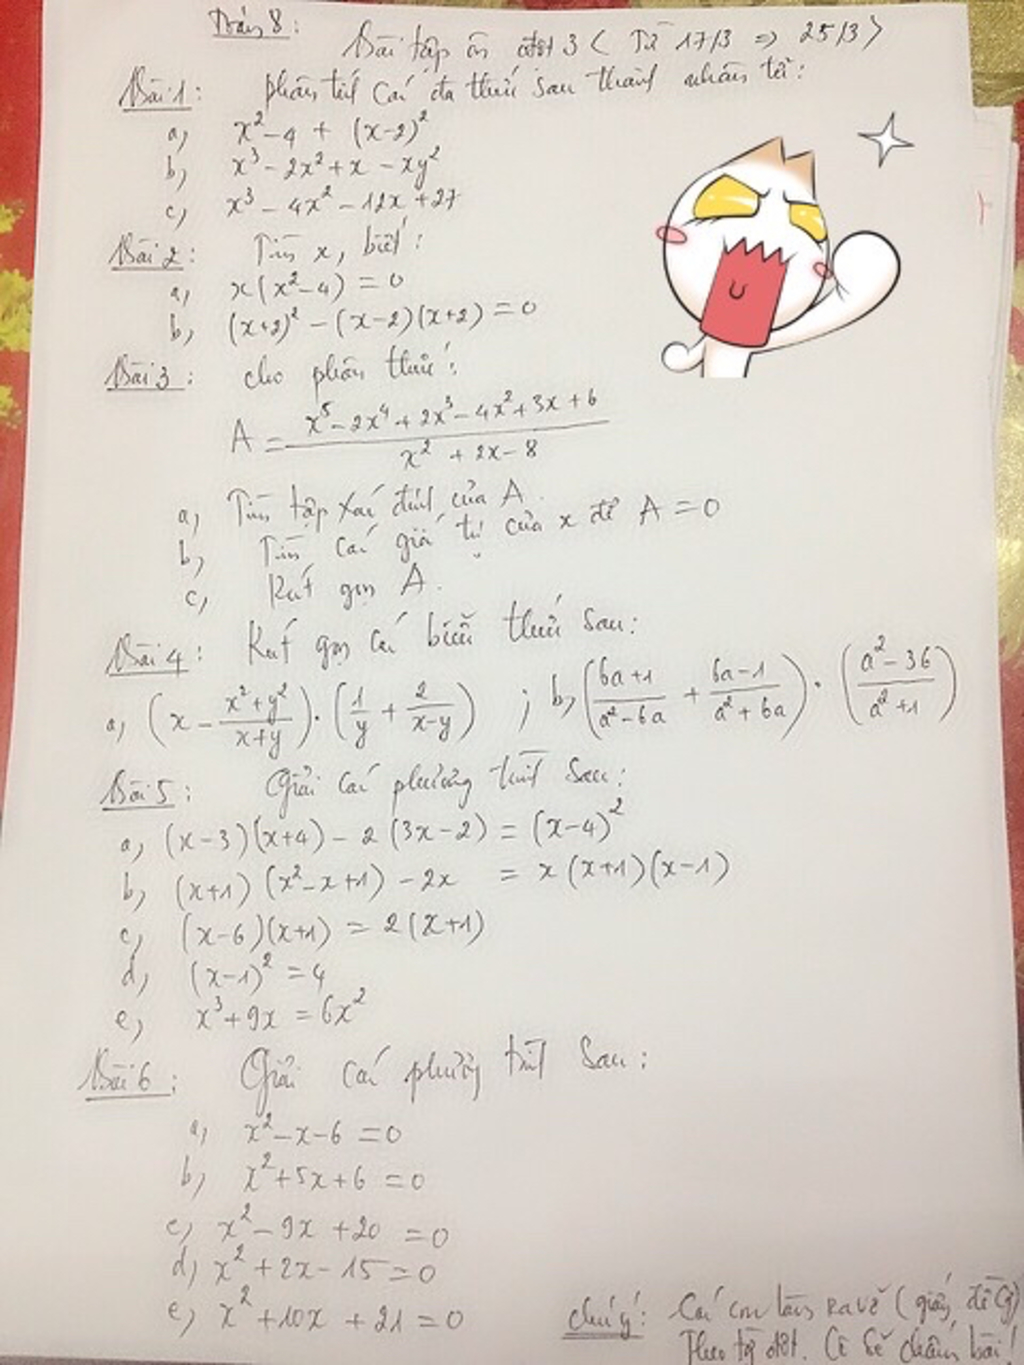 Toán 8:
Bài tập ôn đợt 3 ( Từ 17/3 => 25/3 )
Bài 1: phân tích các đa thức sau thành nhân tử:
a, x² - 4 + (x-2)²
b, x³ - 2x² + x - xy²
c, x³ - 4x² - 12x + 27
Bài 2: Tìm x, biết:
a, x(x² - 4) = 0
b, (x+2)² - (x-2)(x+2) = 0
Bài 3: cho phân thức:
A = (x⁵ - 2x⁴ + 2x³ - 4x² + 3x + 6) / (x² + 2x - 8)
a, Tìm tập xác định của A.
b, Tìm các giá trị của x để A = 0
c, Rút gọn A.
Bài 4: Rút gọn các biểu thức sau:
a, (x - (x² + y²)/(x+y)) · (1/y + 2/(x-y)) ; b, ((6a+1)/(a² - 6a) + (6a-1)/(a² + 6a)) · ((a² - 36)/(a² + 1))
Bài 5: Giải các phương trình sau:
a, (x-3)(x+4) - 2(3x-2) = (x-4)²
b, (x+1)(x² - x + 1) - 2x = x(x+1)(x-1)
c, (x-6)(x+1) = 2(x+1)
d, (x-1)² = 4
e, x³ + 9x = 6x²
Bài 6: Giải các phương trình sau:
a, x² - x - 6 = 0
b, x² + 5x + 6 = 0
c, x² - 9x + 20 = 0
d, x² + 2x - 15 = 0
e, x² + 10x + 21 = 0
chú ý: Các con làm ra vở (giấy để
Theo từng đợt. Cô sẽ chấm bài!